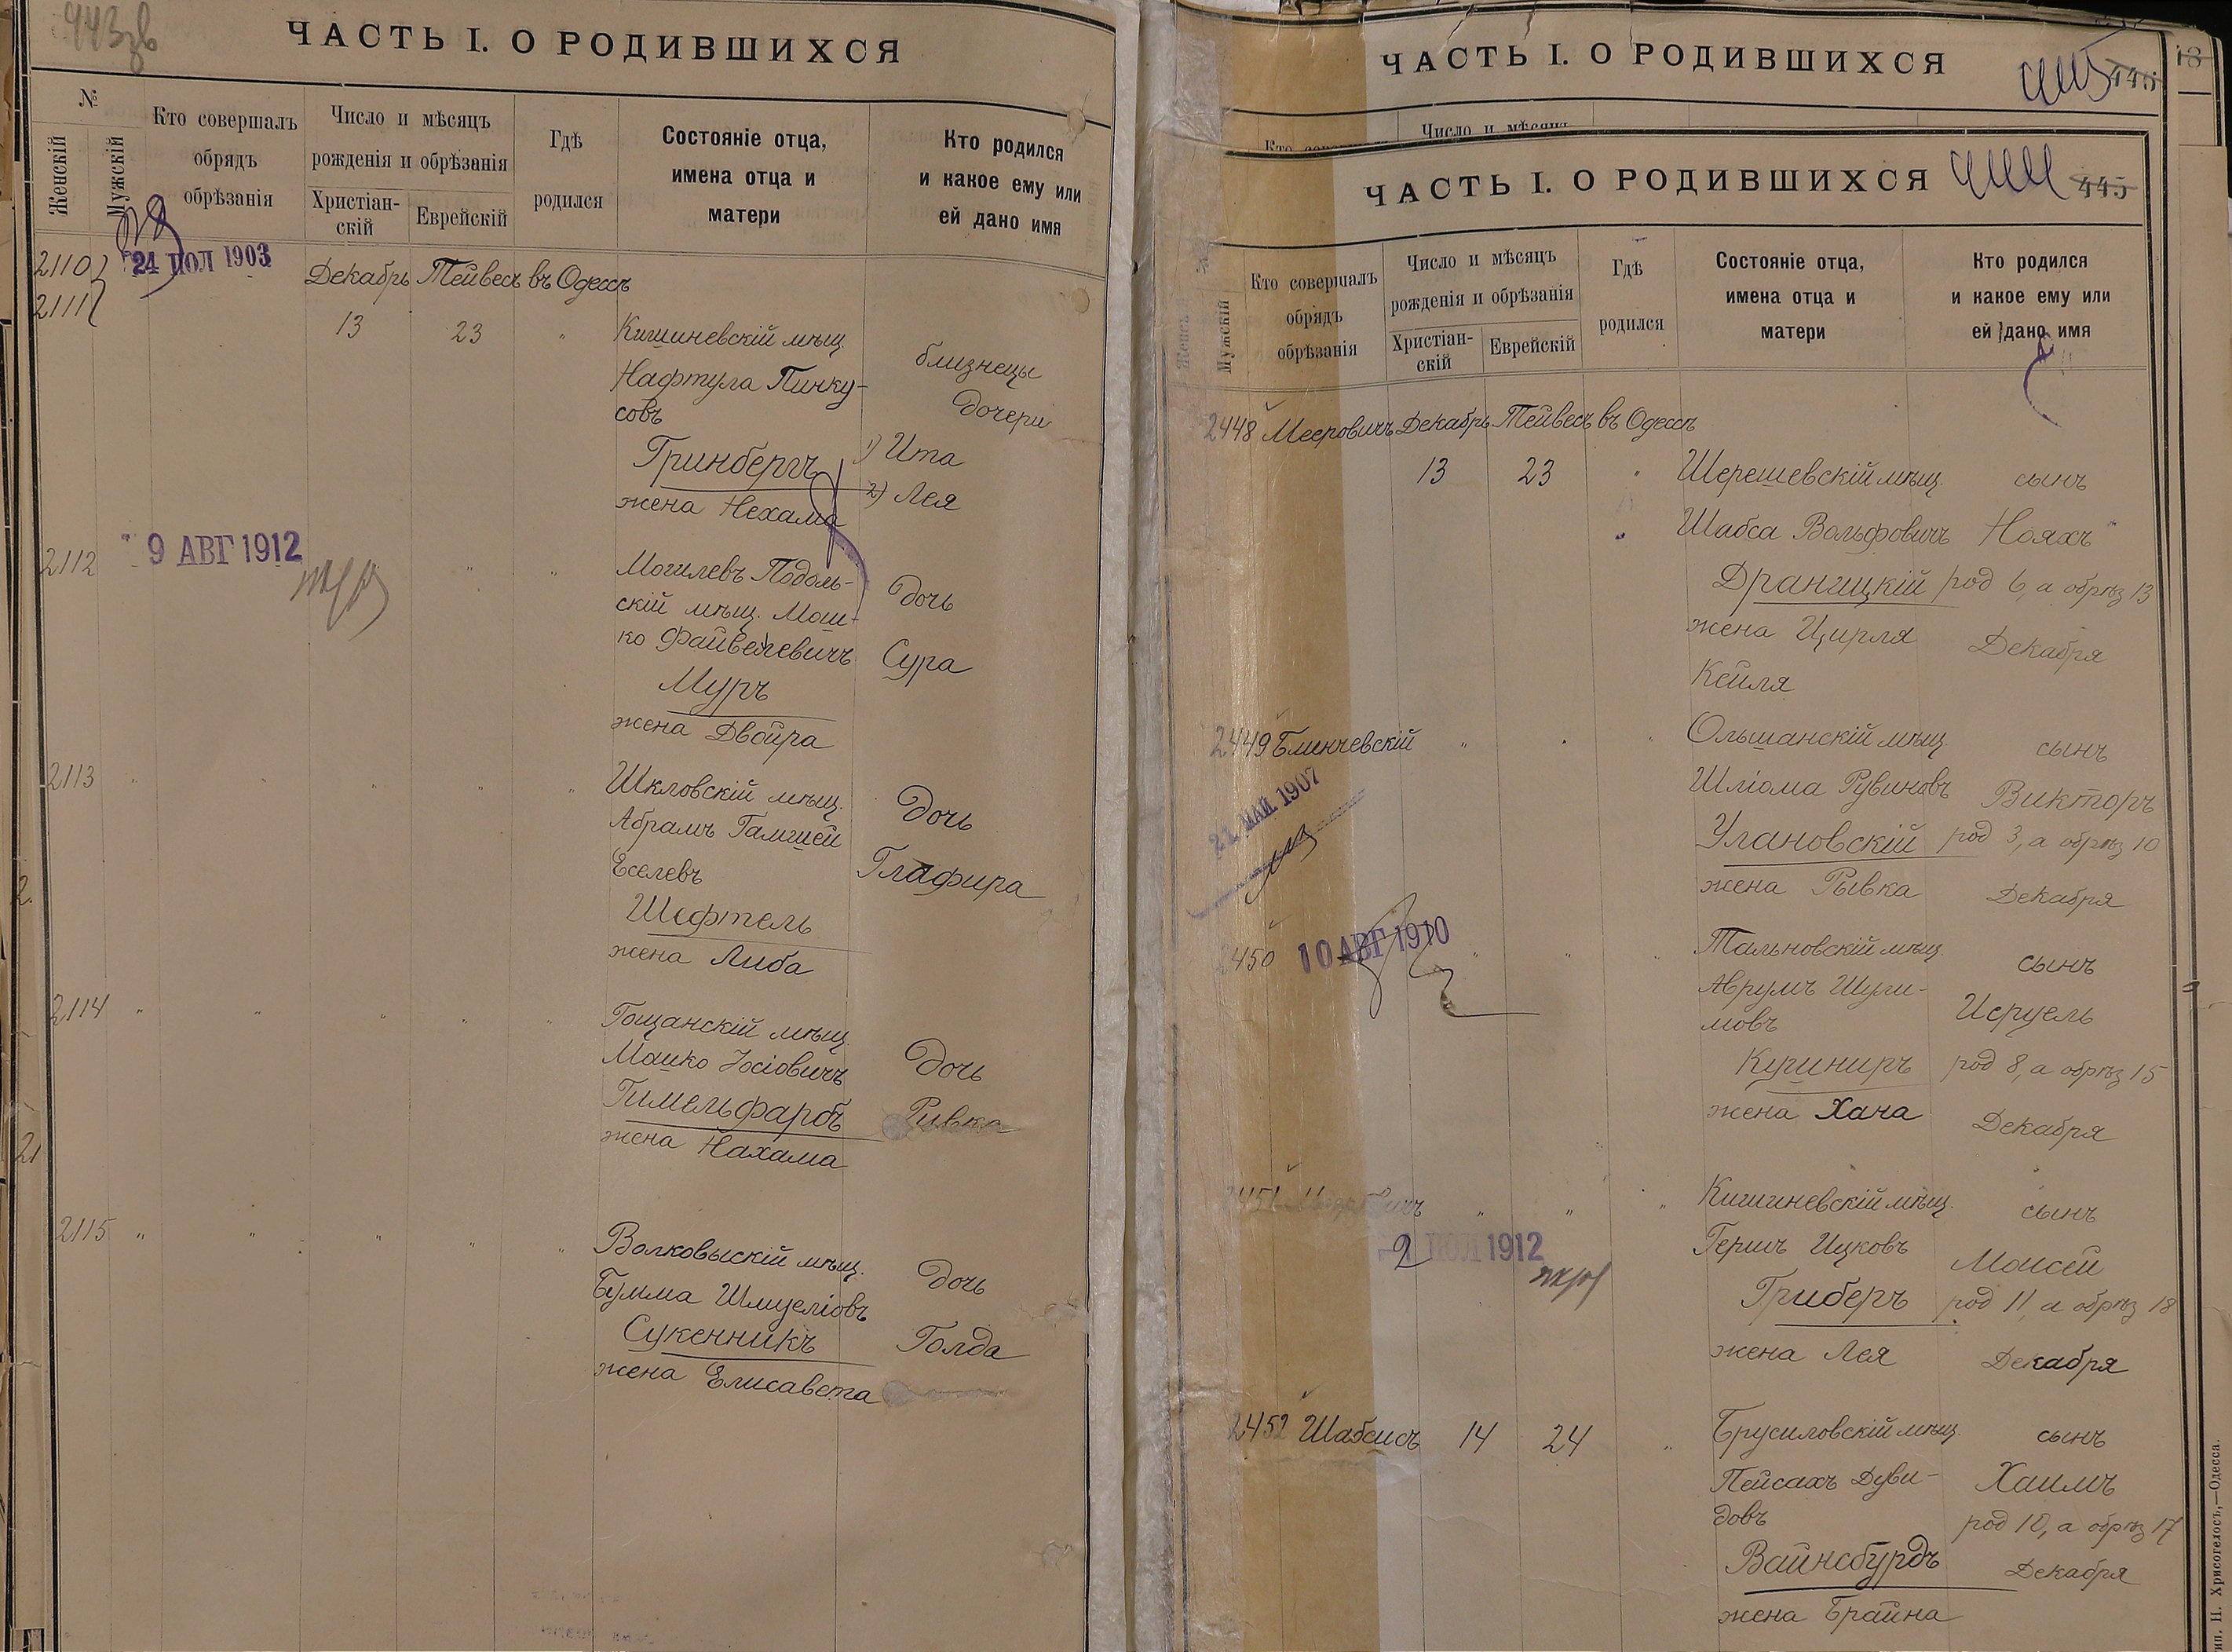 ЧАСТЬ I. О РОДИВШИХСЯ
№
Женскій
Мужскій
Кто совершалъ
обрядъ
обрѣзанія
Число и мѣсяцъ
рожденія и обрѣзанія
Христіан-
скій
Еврейскій
Гдѣ
родился
Состояніе отца,
имена отца и
матери
Кто родился
и какое ему или
ей дано имя
2110
2111
24 ІЮЛ 1903
Декабрь Тейвесъ въ Одессѣ
13 23 "
Кишиневскій мѣщ.
Нафтула Пинку-
совъ
Гринбергъ
жена Нехама
близнецы
дочери
1) Ита
2) Лея
2112
9 АВГ 1912
Могилевъ Подоль-
скій мѣщ. Мош-
ко Файвелевичъ
Муръ
жена Двойра
Дочь
Сура
2113
Шкловскій мѣщ.
Абрамъ Гамшей
Еселевъ
Шефтель
жена Либа
Дочь
Глафира
2114
Гощанскій мѣщ.
Мошко Іосіовичъ
Гимельфарбъ
жена Нахама
Дочь
Ривка
2115
Волковыскій мѣщ.
Бумма Шмуеліовъ
Сукенникъ
жена Елисавета
Дочь
Голда
ЧАСТЬ I. О РОДИВШИХСЯ
445
Число и мѣсяцъ
ЧАСТЬ I. О РОДИВШИХСЯ
445
Мужскій
Кто совершалъ
обрядъ
обрѣзанія
Число и мѣсяцъ
рожденія и обрѣзанія
Христіан-
скій
Еврейскій
Гдѣ
родился
Состояніе отца,
имена отца и
матери
Кто родился
и какое ему или
ей дано имя
2448 Мееровичъ Декабрь Тейвесъ въ Одессѣ
13 23 "
Шерешевскій мѣщ.
Шабса Вольфовичъ
Драницкій
жена Цирля
Кейля
сынъ
Нояхъ
род 6, а обрѣз 13
Декабря
2449 Блинчевскій
21 МАЙ 1907
Ольшанскій мѣщ.
Шліома Рувиновъ
Улановскій
жена Рывка
сынъ
Викторъ
род 3, а обрѣз 10
Декабря
2450
10 АВГ 1910
Тальновскій мѣщ.
Аврумъ Шули-
мовъ
Кушниръ
жена Хача
сынъ
Исруель
род 8, а обрѣз 15
Декабря
2451
2 ІЮЛ 1912
Кишиневскій мѣщ.
Гершъ Ицковъ
Гриберъ
жена Лея
сынъ
Моисей
род 11, а обрѣз 18
Декабря
2452 Шабсисъ 14 24 "
Брусиловскій мѣщ.
Пейсахъ Дуви-
довъ
Вайнсбурдъ
жена Брайна
сынъ
Хаимъ
род 10, а обрѣз 17
Декабря
Тип. Н. Хрисогелосъ,—Одесса.